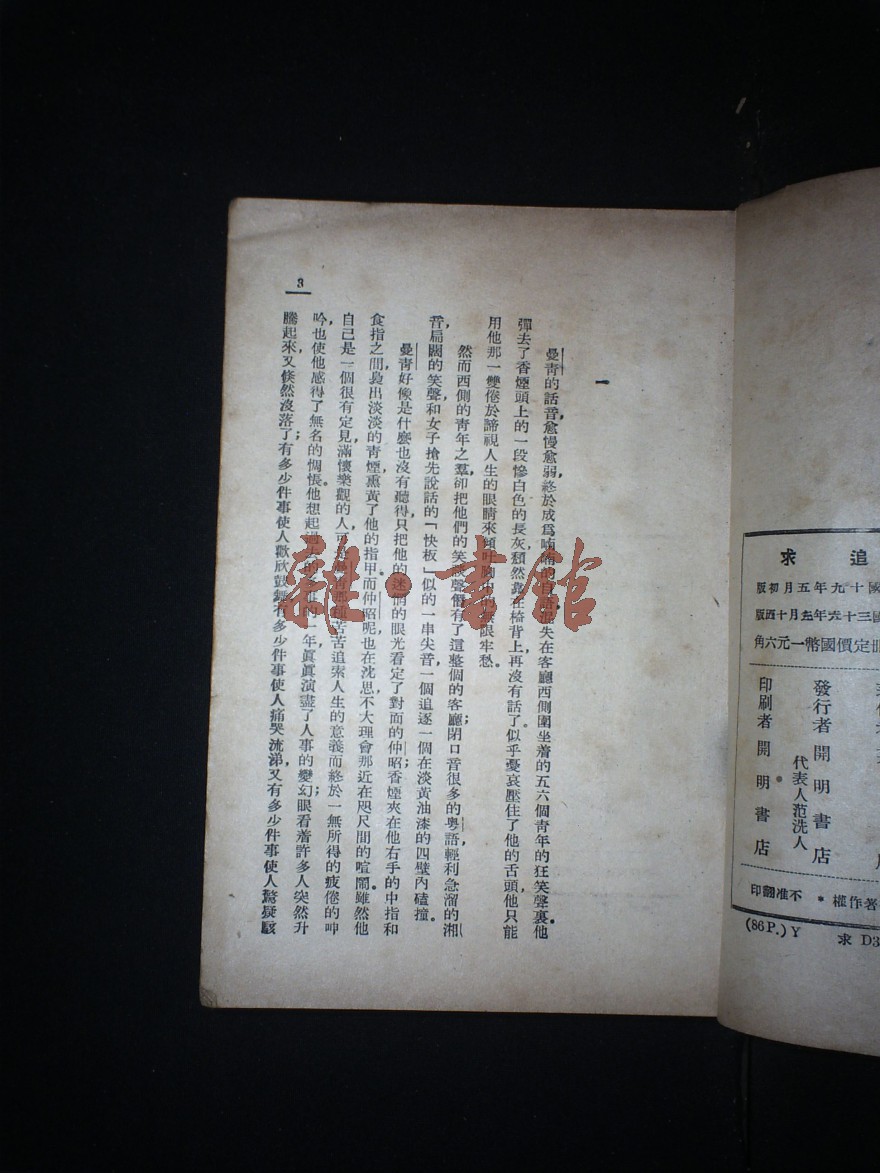 追求
國十九年五月初版
冊定價國幣一元六角
發行者 開明書店
代表人范洗人
印刷者 開明書店
著作權 * 不准翻印
(86 P.) Y 求 D3
一
曼青的話音愈慢愈弱,終於成爲喃喃的自語,消失在客廳西側圍坐着的五六個青年的狂笑聲裏。他
彈去了香煙頭上的一段慘白色的長灰,頹然靠在椅背上,再沒有話了。似乎憂哀壓住了他的舌頭,他只能
用他那一雙倦於諦視人生的眼睛來傾吐胸中的無限牢愁。
然而西側的青年之羣,卻把他們的笑談聲佔有了這整個的客廳。閉口音很多的粵語,輕利急溜的湘
音,扁闊的笑聲,和女子搶先說話的「快板」似的一串尖音,一個追逐一個在淡黃油漆的四壁內磕撞。
曼青好像是什麼也沒有聽得,只把他的迷惘的眼光看定了對面的仲昭;香煙夾在他右手的中指和
食指之間,裊出淡淡的青煙,熏黃了他的指甲。而仲昭呢,也在沈思,不大理會那近在咫尺間的喧鬧。雖然他
自己是一個很有定見,滿懷樂觀的人,可是曼青那種苦苦追索人生的意義而終於一無所得的疲倦的呻
吟,也使他感得了無名的惆悵。他想起過去的多難的一年,眞眞演盡了人事的變幻;眼看着許多人突然升
騰起來,又倏然沒落了;有多少件事使人歡欣鼓舞,有多少件事使人痛哭流涕,又有多少件事使人驚疑駭
3
雜·書館